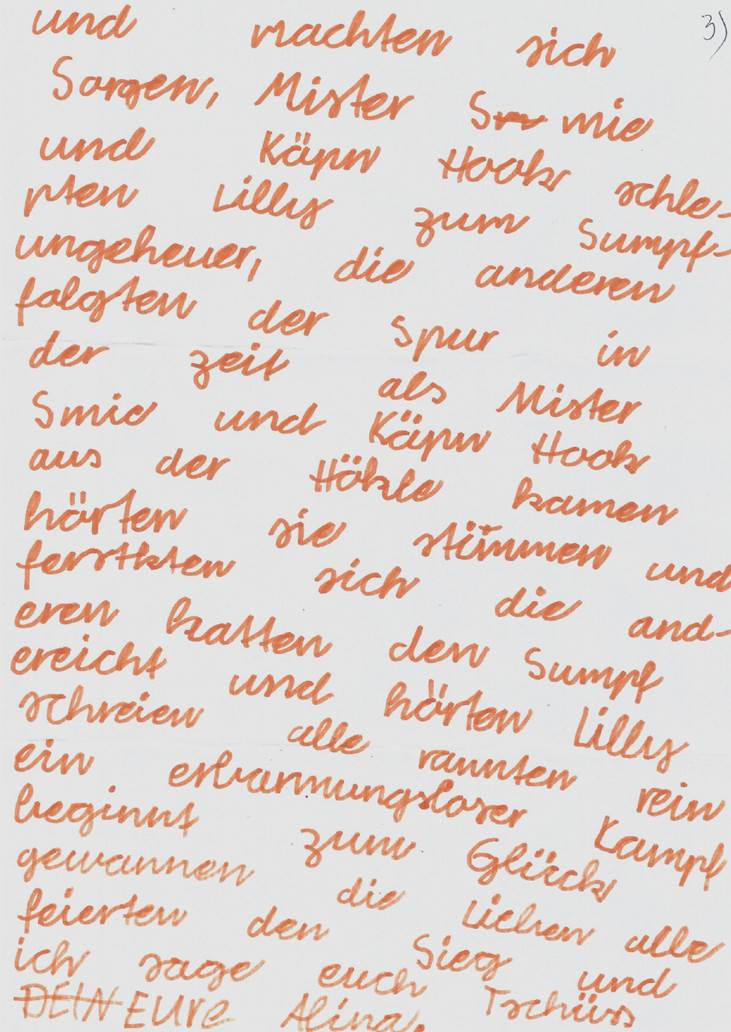 3)
und machten sich
Sorgen, Mister Smie
und Käpn Hook schle-
pten Lilly zum Sumpf-
ungeheuer, die anderen
folgten der Spur in
der zeit als Mister
Smie und Käpn Hook
aus der Höhle kamen
hörten sie stimmen und
ferstkten sich die and-
eren hatten den Sumpf
ereicht und hörten Lilly
schreien alle rannten rein
ein erbarmungsloser Kampf
beginnt zum Glück
gewannen die Lieben alle
feierten den Sieg und
ich sage euch Tschüss
DEIN EURE Alina.